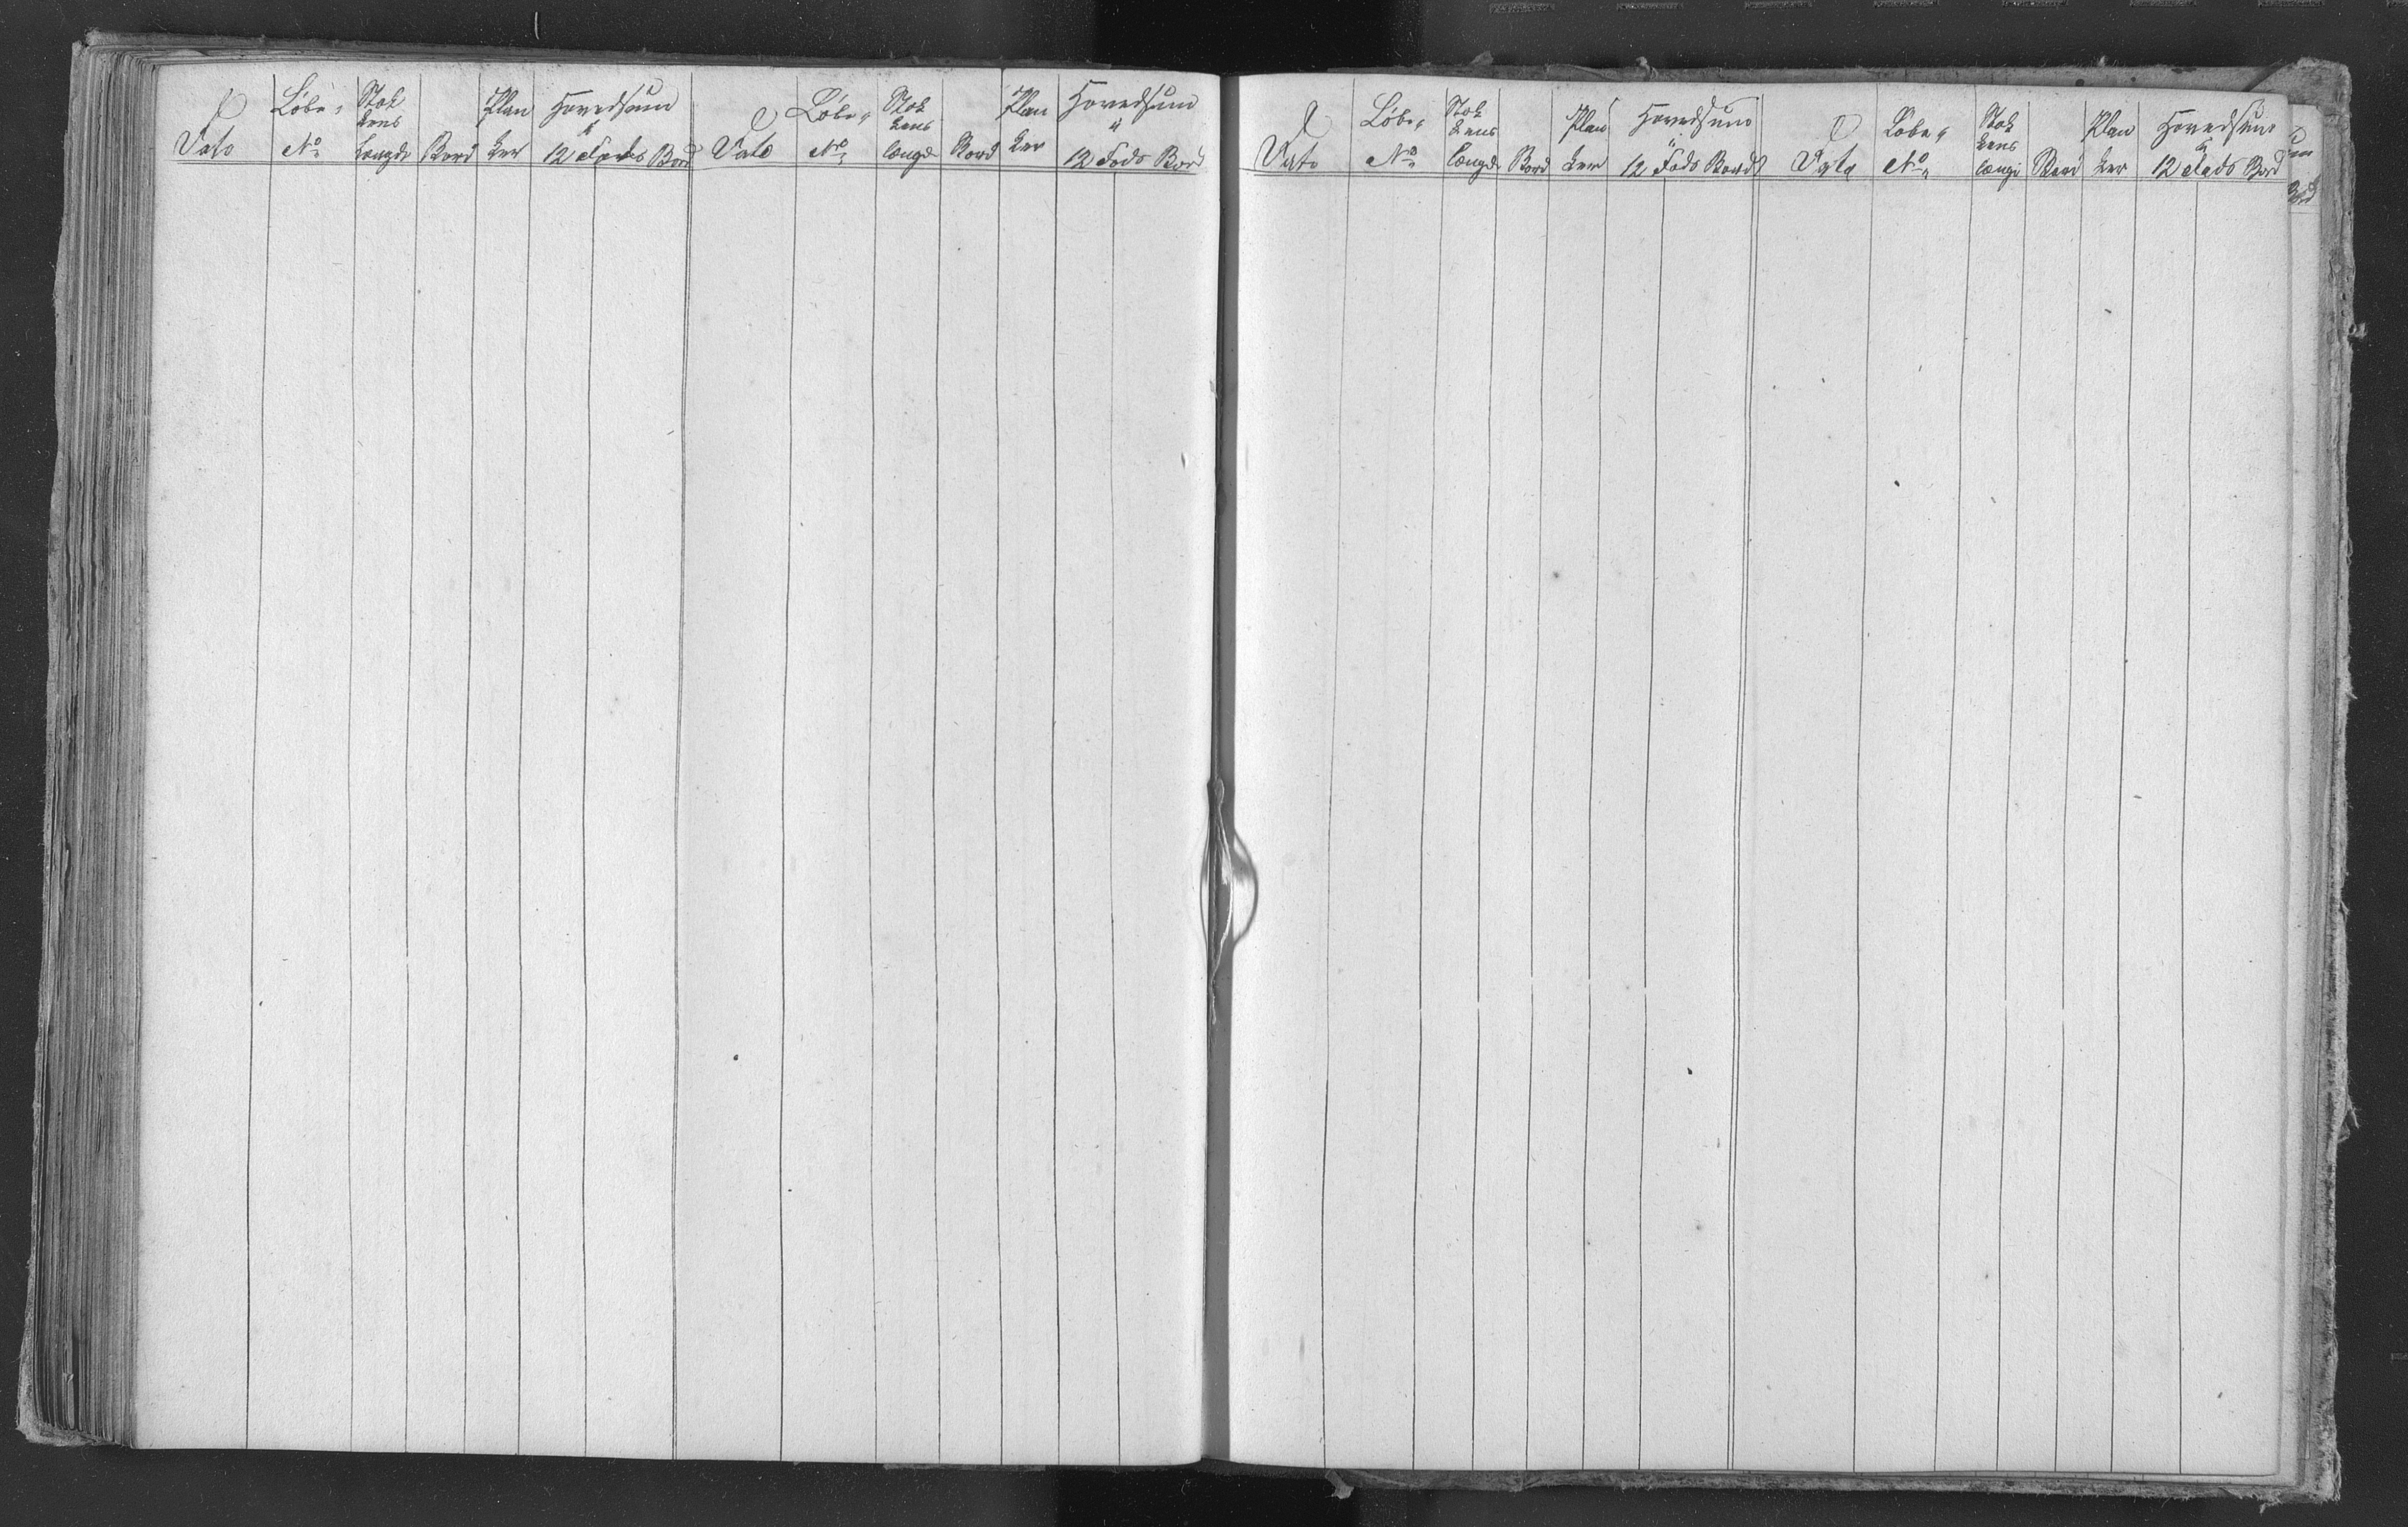 Dato Løbe- No Stokkens Længde Bord Planker Hovedsum a 12 Fods Bord
Dato Løbe- No Stokkens længde Bord Planker Hovedsum a 12 Fods Bord
Dato Løbe- No Stokkens længde Bord Planker Hovedsum a 12 Fods Bord
Dato Løbe- No Stokkens længde Bord Planker Hovedsum a 12 Fods Bord